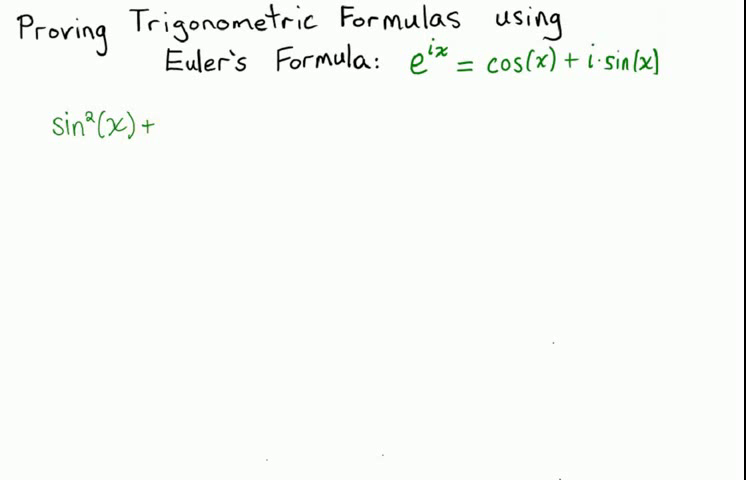 Proving Trigonometric Formulas using
Euler's Formula: e^{ix} = cos(x) + i·sin(x)
sin²(x) +